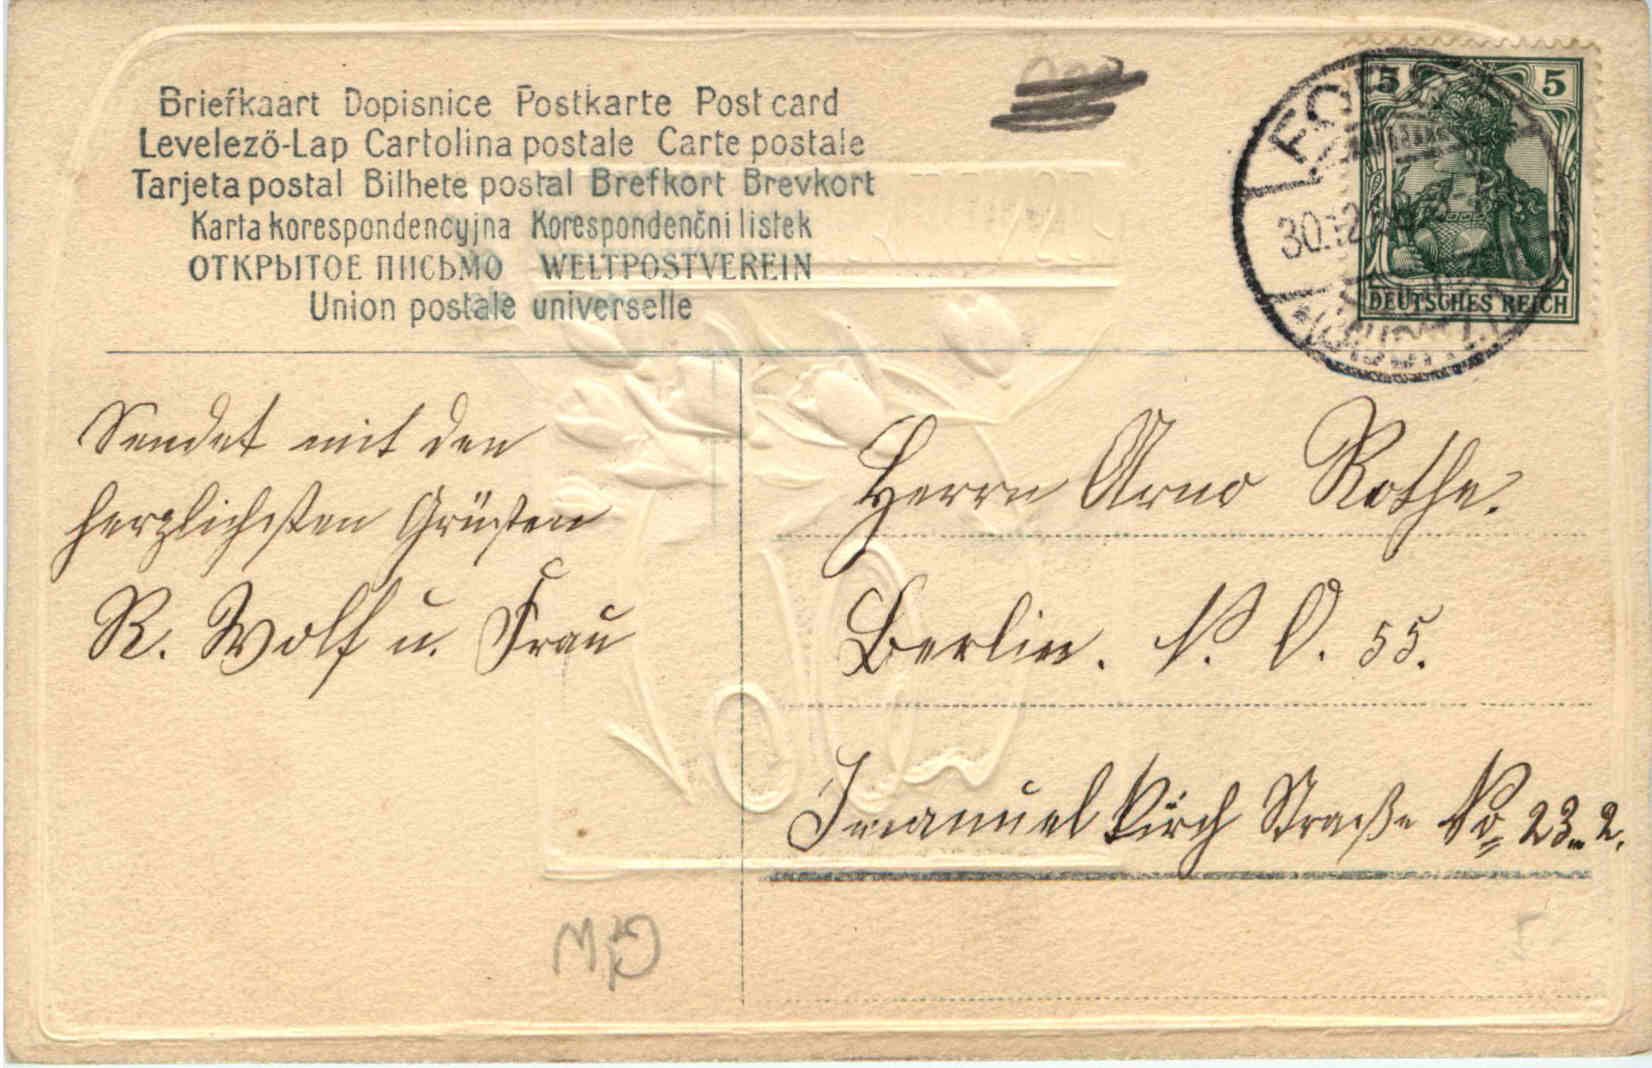 Briefkaart Dopisnice Postkarte Post card
Levelező-Lap Cartolina postale Carte postale
Tarjeta postal Bilhete postal Brefkort Brevkort
Karta korespondencyjna Korespondenčni listek
ОТКРЫТОЕ ПИСЬМО WELTPOSTVEREIN
Union postale universelle
5 5
DEUTSCHES REICH
30.12.
Sendet mit den
herzlichsten Grüßen
R. Wolf u. Frau
Herrn Arno Rothe.
Berlin. N. O. 55.
Imanuel Kirch Straße No 23. 2.